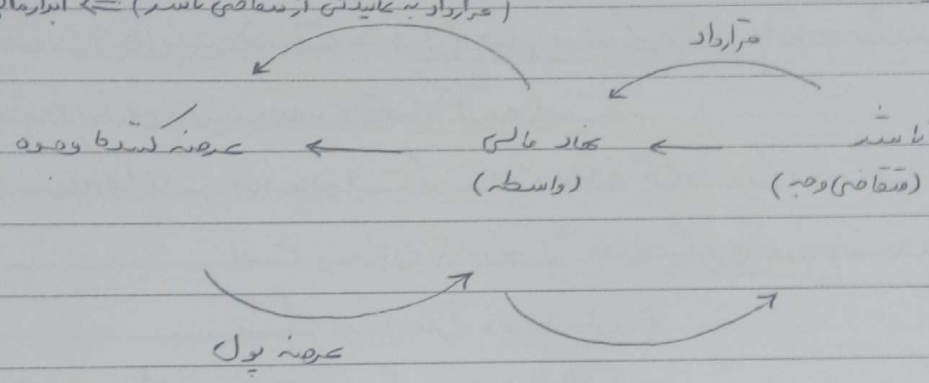 (قرارداد به نمایندگی از متقاضی باشد) ⇐ ابزار مال
قرارداد
ناشر ← نهاد مالی ← عرضه کننده وجوه
(متقاضی وجه) (واسطه)
عرضه پول